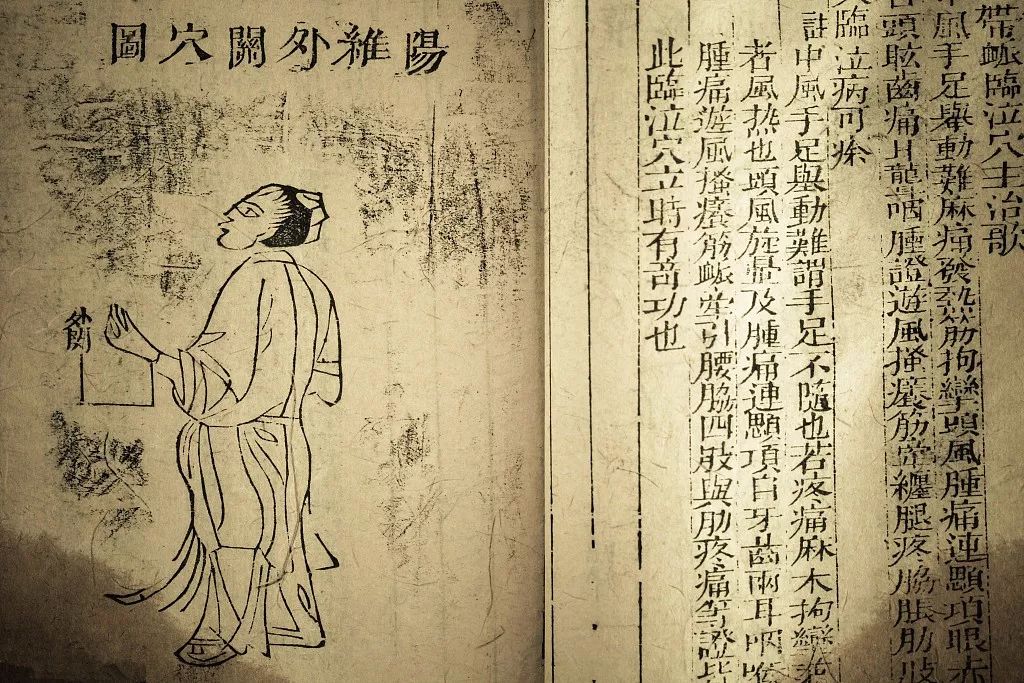 帶衇臨泣穴主治歌
中風手足舉動難麻痛發熱筋拘攣頭風腫痛連顋項眼赤
頭眩齒痛耳聾咽腫證遊風搔癢筋牽纏腿疼脇脹肋肢
入臨泣病可痊
註中風手足舉動難謂手足不隨也若疼痛麻木拘攣
者風热也頭風旋暈及腫痛連顋項目牙齒兩耳咽喉
腫痛遊風搔癢筋衇牽引腰脇四肢與肋疼痛等證皆
此臨泣穴立時有奇功也
陽維外關穴圖
外関